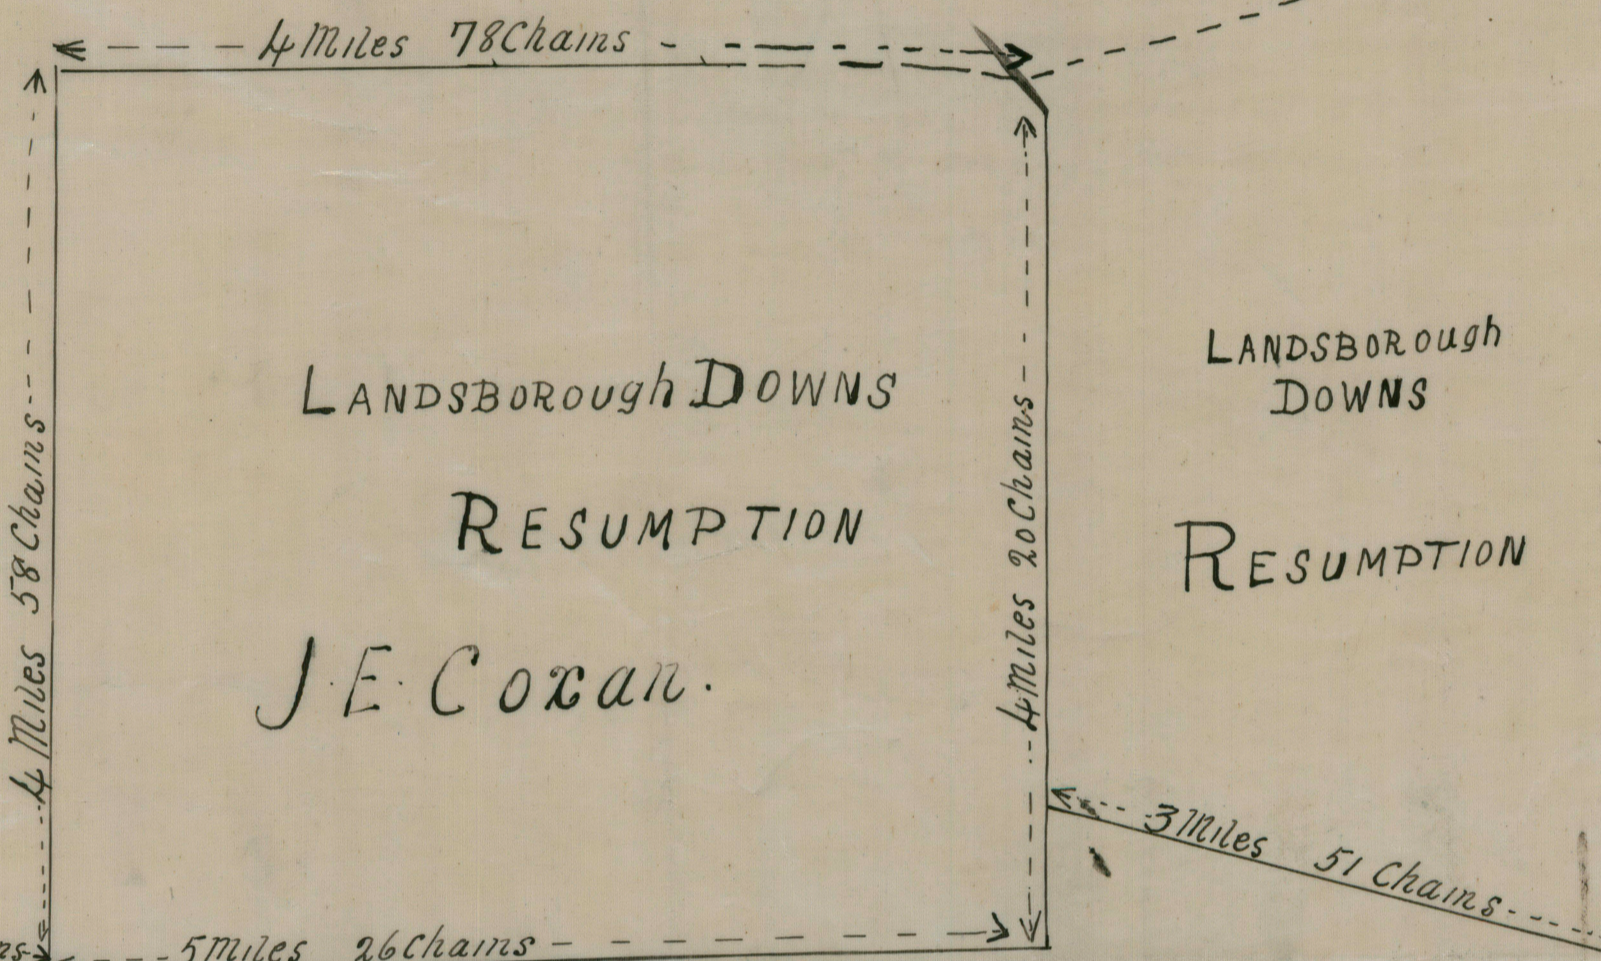 4 Miles 78 Chains
4 Miles 58 Chains
LANDSBOROugh DOWNS
RESUMPTION
J. E. Coxan.
4 Miles 20 Chains
LANDSBOROugh
DOWNS
RESUMPTION
3 Miles 51 Chains
5 Miles 26 Chains